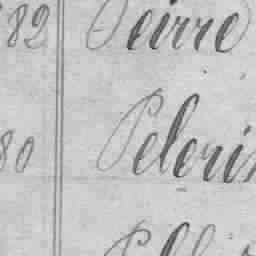 82 Peirre
80 Peleri